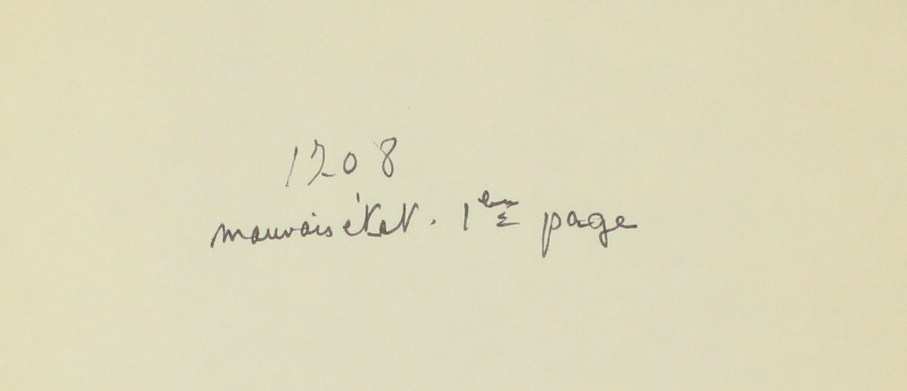 1208
mauvais état. 1ère page